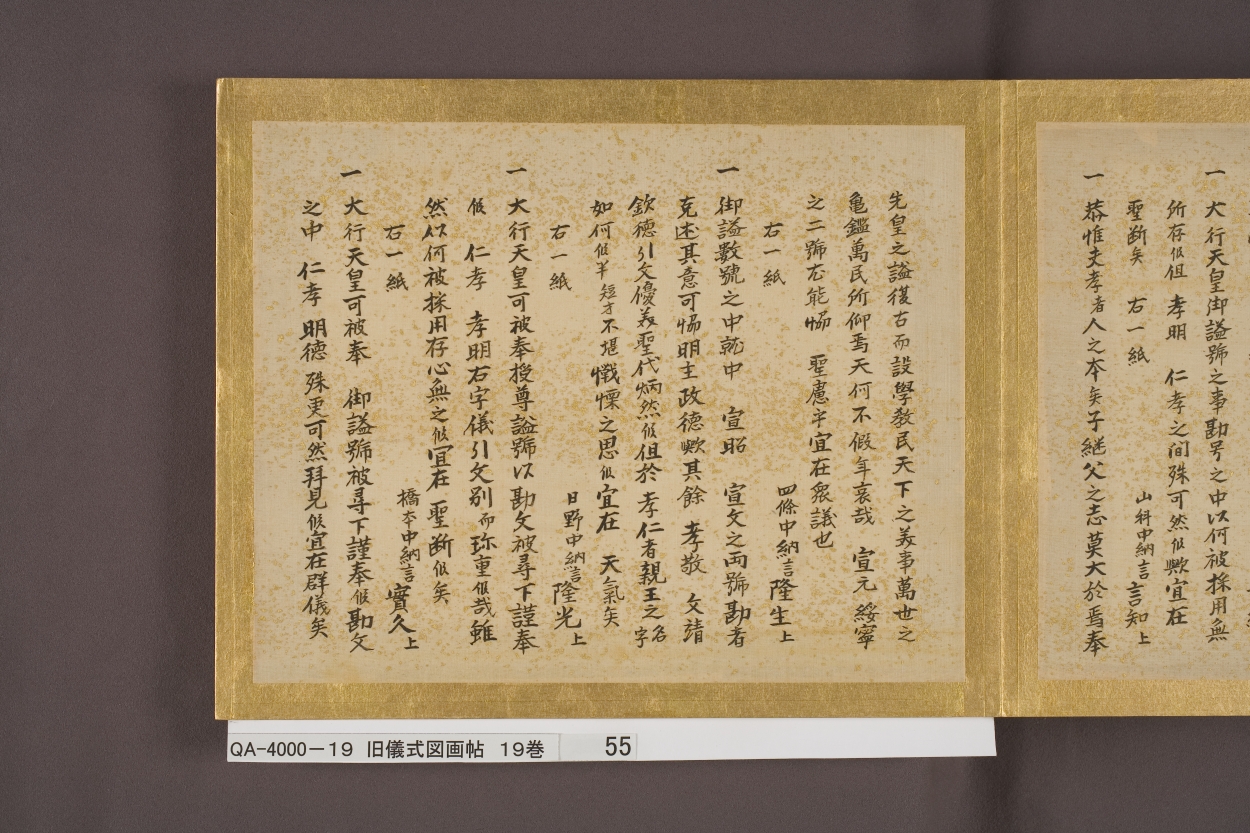 一 大行天皇御謚號之事勘号之中以何被採用無
所存候但 孝明 仁孝之間殊可然候歟宜在
聖断矣 右一紙
山科中納言言知上
一 恭惟夫孝者人之本矣子継父之志莫大於焉奉
先皇之謚復古而設學敎民天下之美事萬世之
亀鑑萬民所仰焉天何不假年哀哉 宣元 綏寧
之二號尤能恊 聖慮乎宜在衆議也
右一紙
四條中納言隆生上
一 御謚數號之中就中 宣昭 宣文之両號勘者
克述其意可恊明主政德歟其餘 孝敬 文靖
欽德引文優美聖代炳然候但於 孝仁者親王之名字
如何候半短才不堪懺慄之思候宜在 天氣矣
右一紙
日野中納言隆光上
一 大行天皇可被奉授尊謚號以勘文被尋下謹奉
候 仁孝 孝明右字儀引文別而珎重候哉雖
然以何被採用存心無之候宜在 聖断候矣
右一紙
橋本中納言實久上
一 大行天皇可被奉 御謚號被尋下謹奉候勘文
之中 仁孝 明德 殊更可然拜見候宜在群儀矣
QA-4000-19 旧儀式図画帖 19巻 55